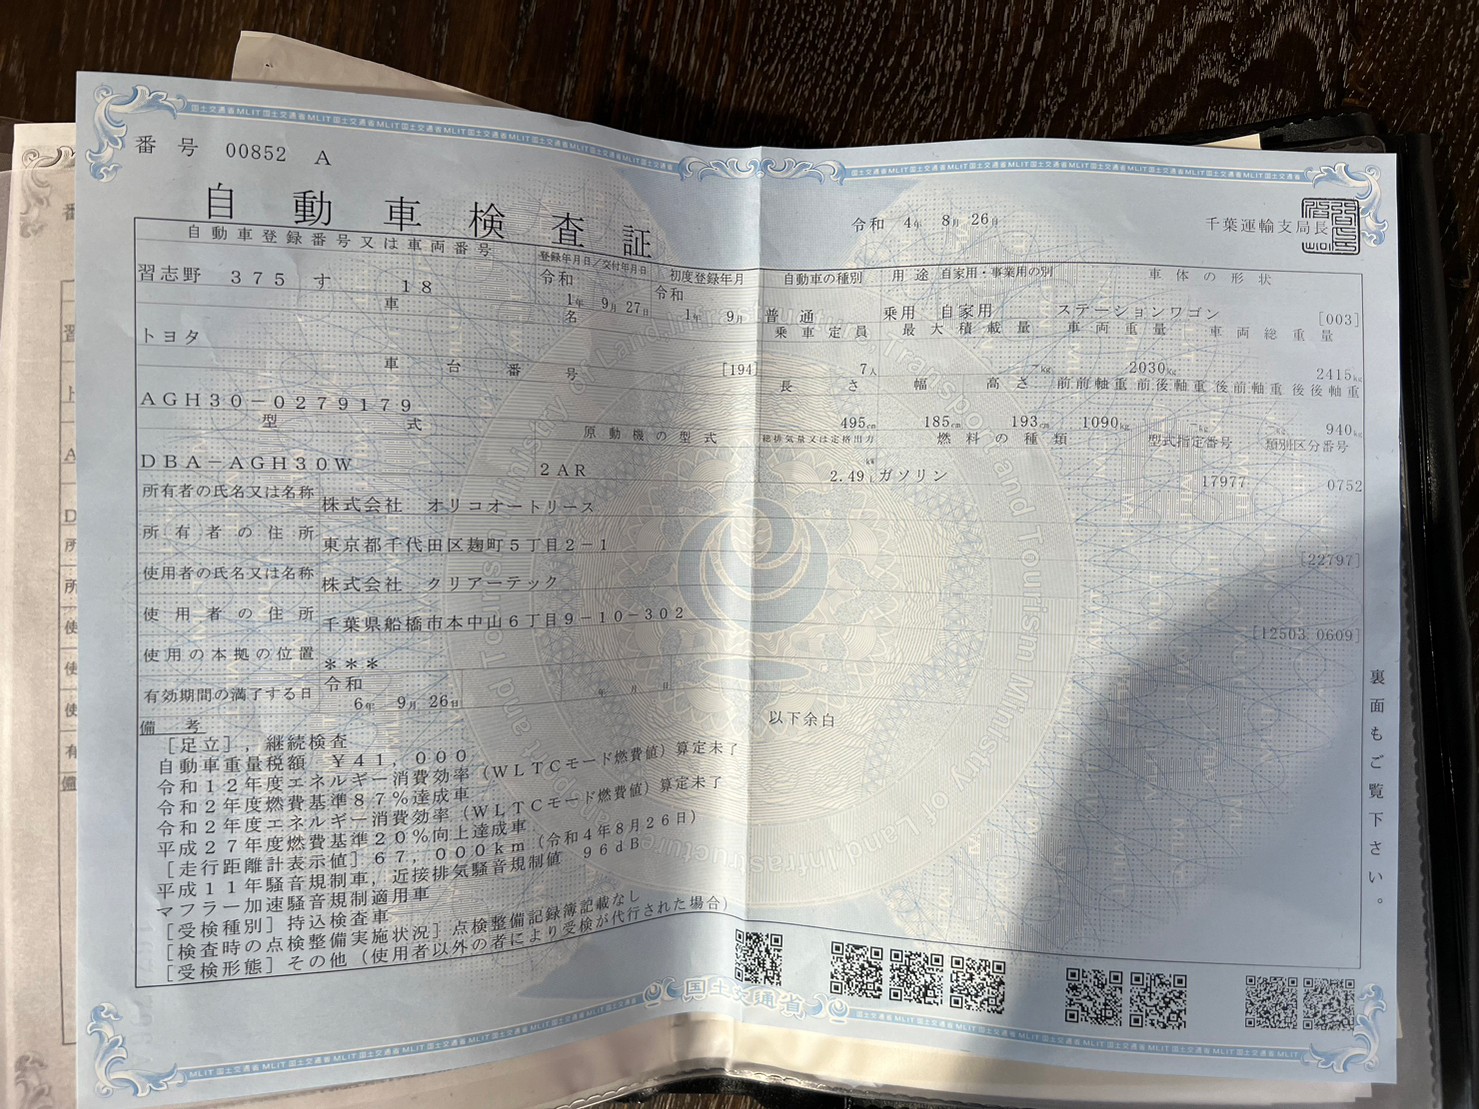 番号 00852 A
自動車検査証
令和 4年 8月 26日 千葉運輸支局長
自動車登録番号又は車両番号 登録年月日／交付年月日 初度登録年月 自動車の種別 用途 自家用・事業用の別 車体の形状
習志野 375 す 18 令和 1年 9月 27日 令和 1年 9月 普通 乗用 自家用 ステーションワゴン [003]
車名 乗車定員 最大積載量 車両重量 車両総重量
トヨタ [194] 7人 -kg 2030kg 2415kg
車台番号 長さ 幅 高さ 前前軸重 前後軸重 後前軸重 後後軸重
AGH30-0279179 495cm 185cm 193cm 1090kg -kg -kg 940kg
型式 原動機の型式 総排気量又は定格出力 燃料の種類 型式指定番号 類別区分番号
DBA-AGH30W 2AR 2.49 kW L ガソリン 17977 0752
所有者の氏名又は名称 株式会社 オリコオートリース
所有者の住所 東京都千代田区麹町5丁目2-1 [22797]
使用者の氏名又は名称 株式会社 クリアーテック
使用者の住所 千葉県船橋市本中山6丁目9-10-302 [12503 0609]
使用の本拠の位置 ＊＊＊
有効期間の満了する日 令和 6年 9月 26日 年 月 日
備考 以下余白
[足立], 継続検査
自動車重量税額 ￥41,000
令和12年度エネルギー消費効率(WLTCモード燃費値)算定未了
令和2年度燃費基準87%達成車
令和2年度エネルギー消費効率(WLTCモード燃費値)算定未了
平成27年度燃費基準20%向上達成車
[走行距離計表示値] 67,000km(令和4年8月26日)
平成11年騒音規制車, 近接排気騒音規制値 96dB
マフラー加速騒音規制適用車
[受検種別] 持込検査車
[検査時の点検整備実施状況] 点検整備記録簿記載なし
[受検形態] その他(使用者以外の者により受検が代行された場合)
裏面もご覧下さい。
国土交通省